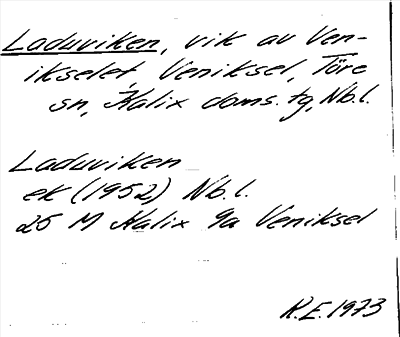 Laduviken, vik av Ven-
ikselet, Veniksel, Töre
sn, Kalix doms. tg, Nb.l.
Laduviken
ek (1952) Nb.l.
25 M Kalix 9a Veniksel
K.E. 1973